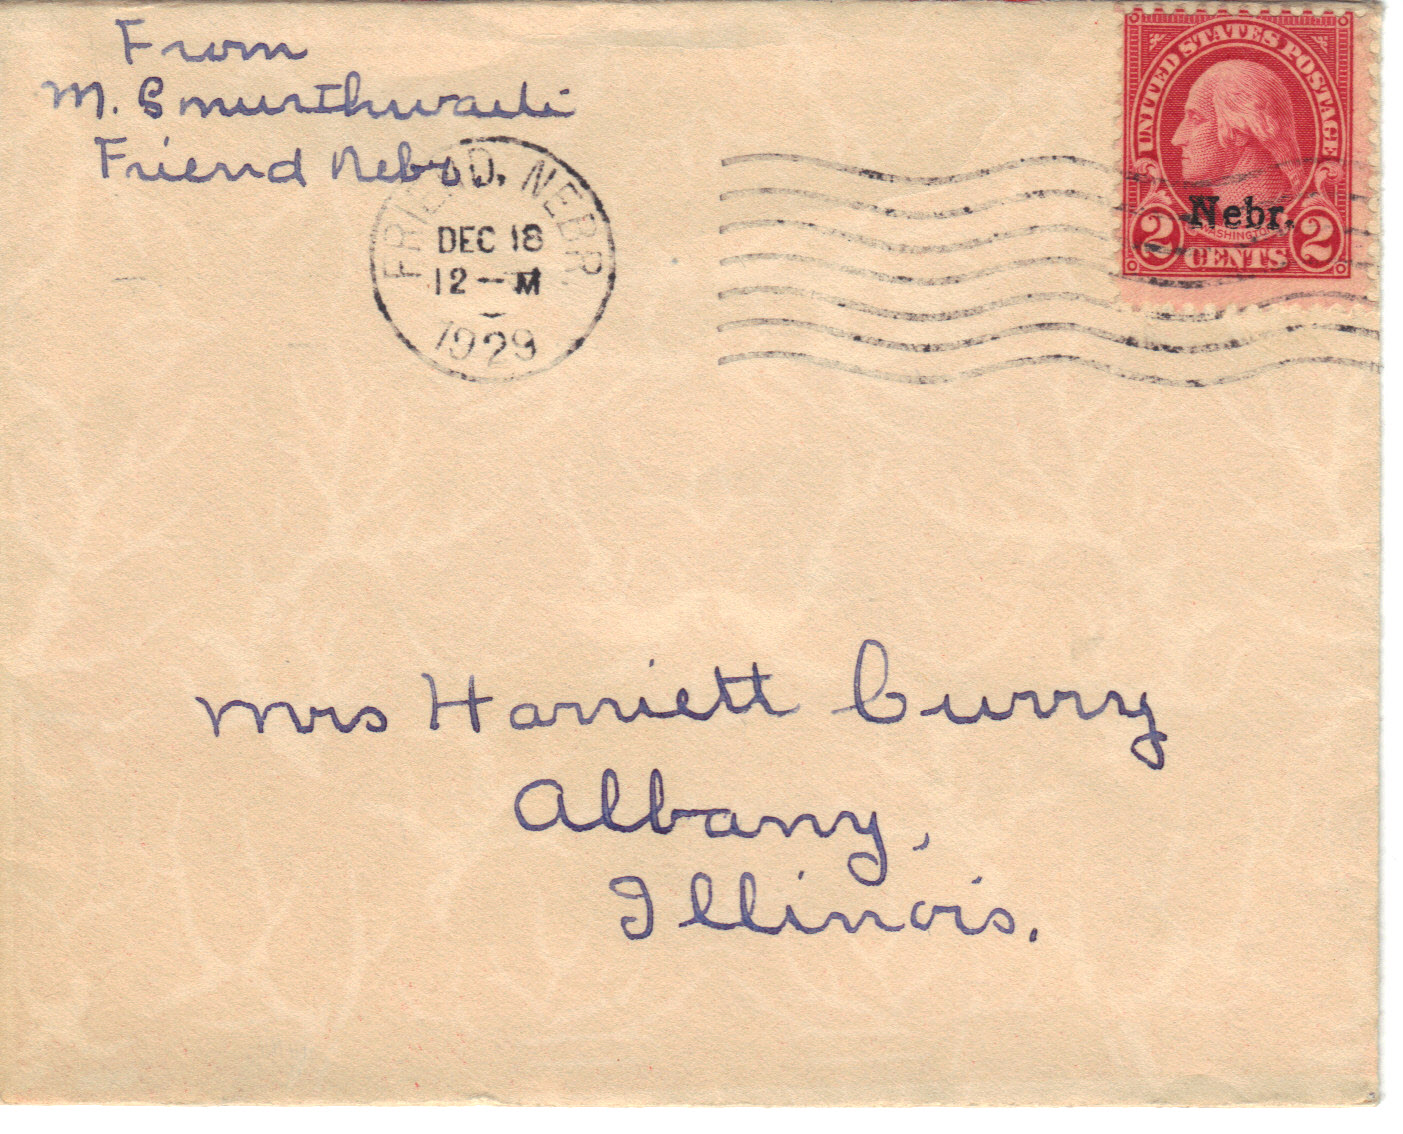 From
M. Smurthwaite
Friend Nebr.
FRIEND, NEBR.
DEC 18
12 - M
1929
UNITED STATES POSTAGE
Nebr.
WASHINGTON
2 CENTS 2
Mrs Harriett Curry
Albany,
Illinois.